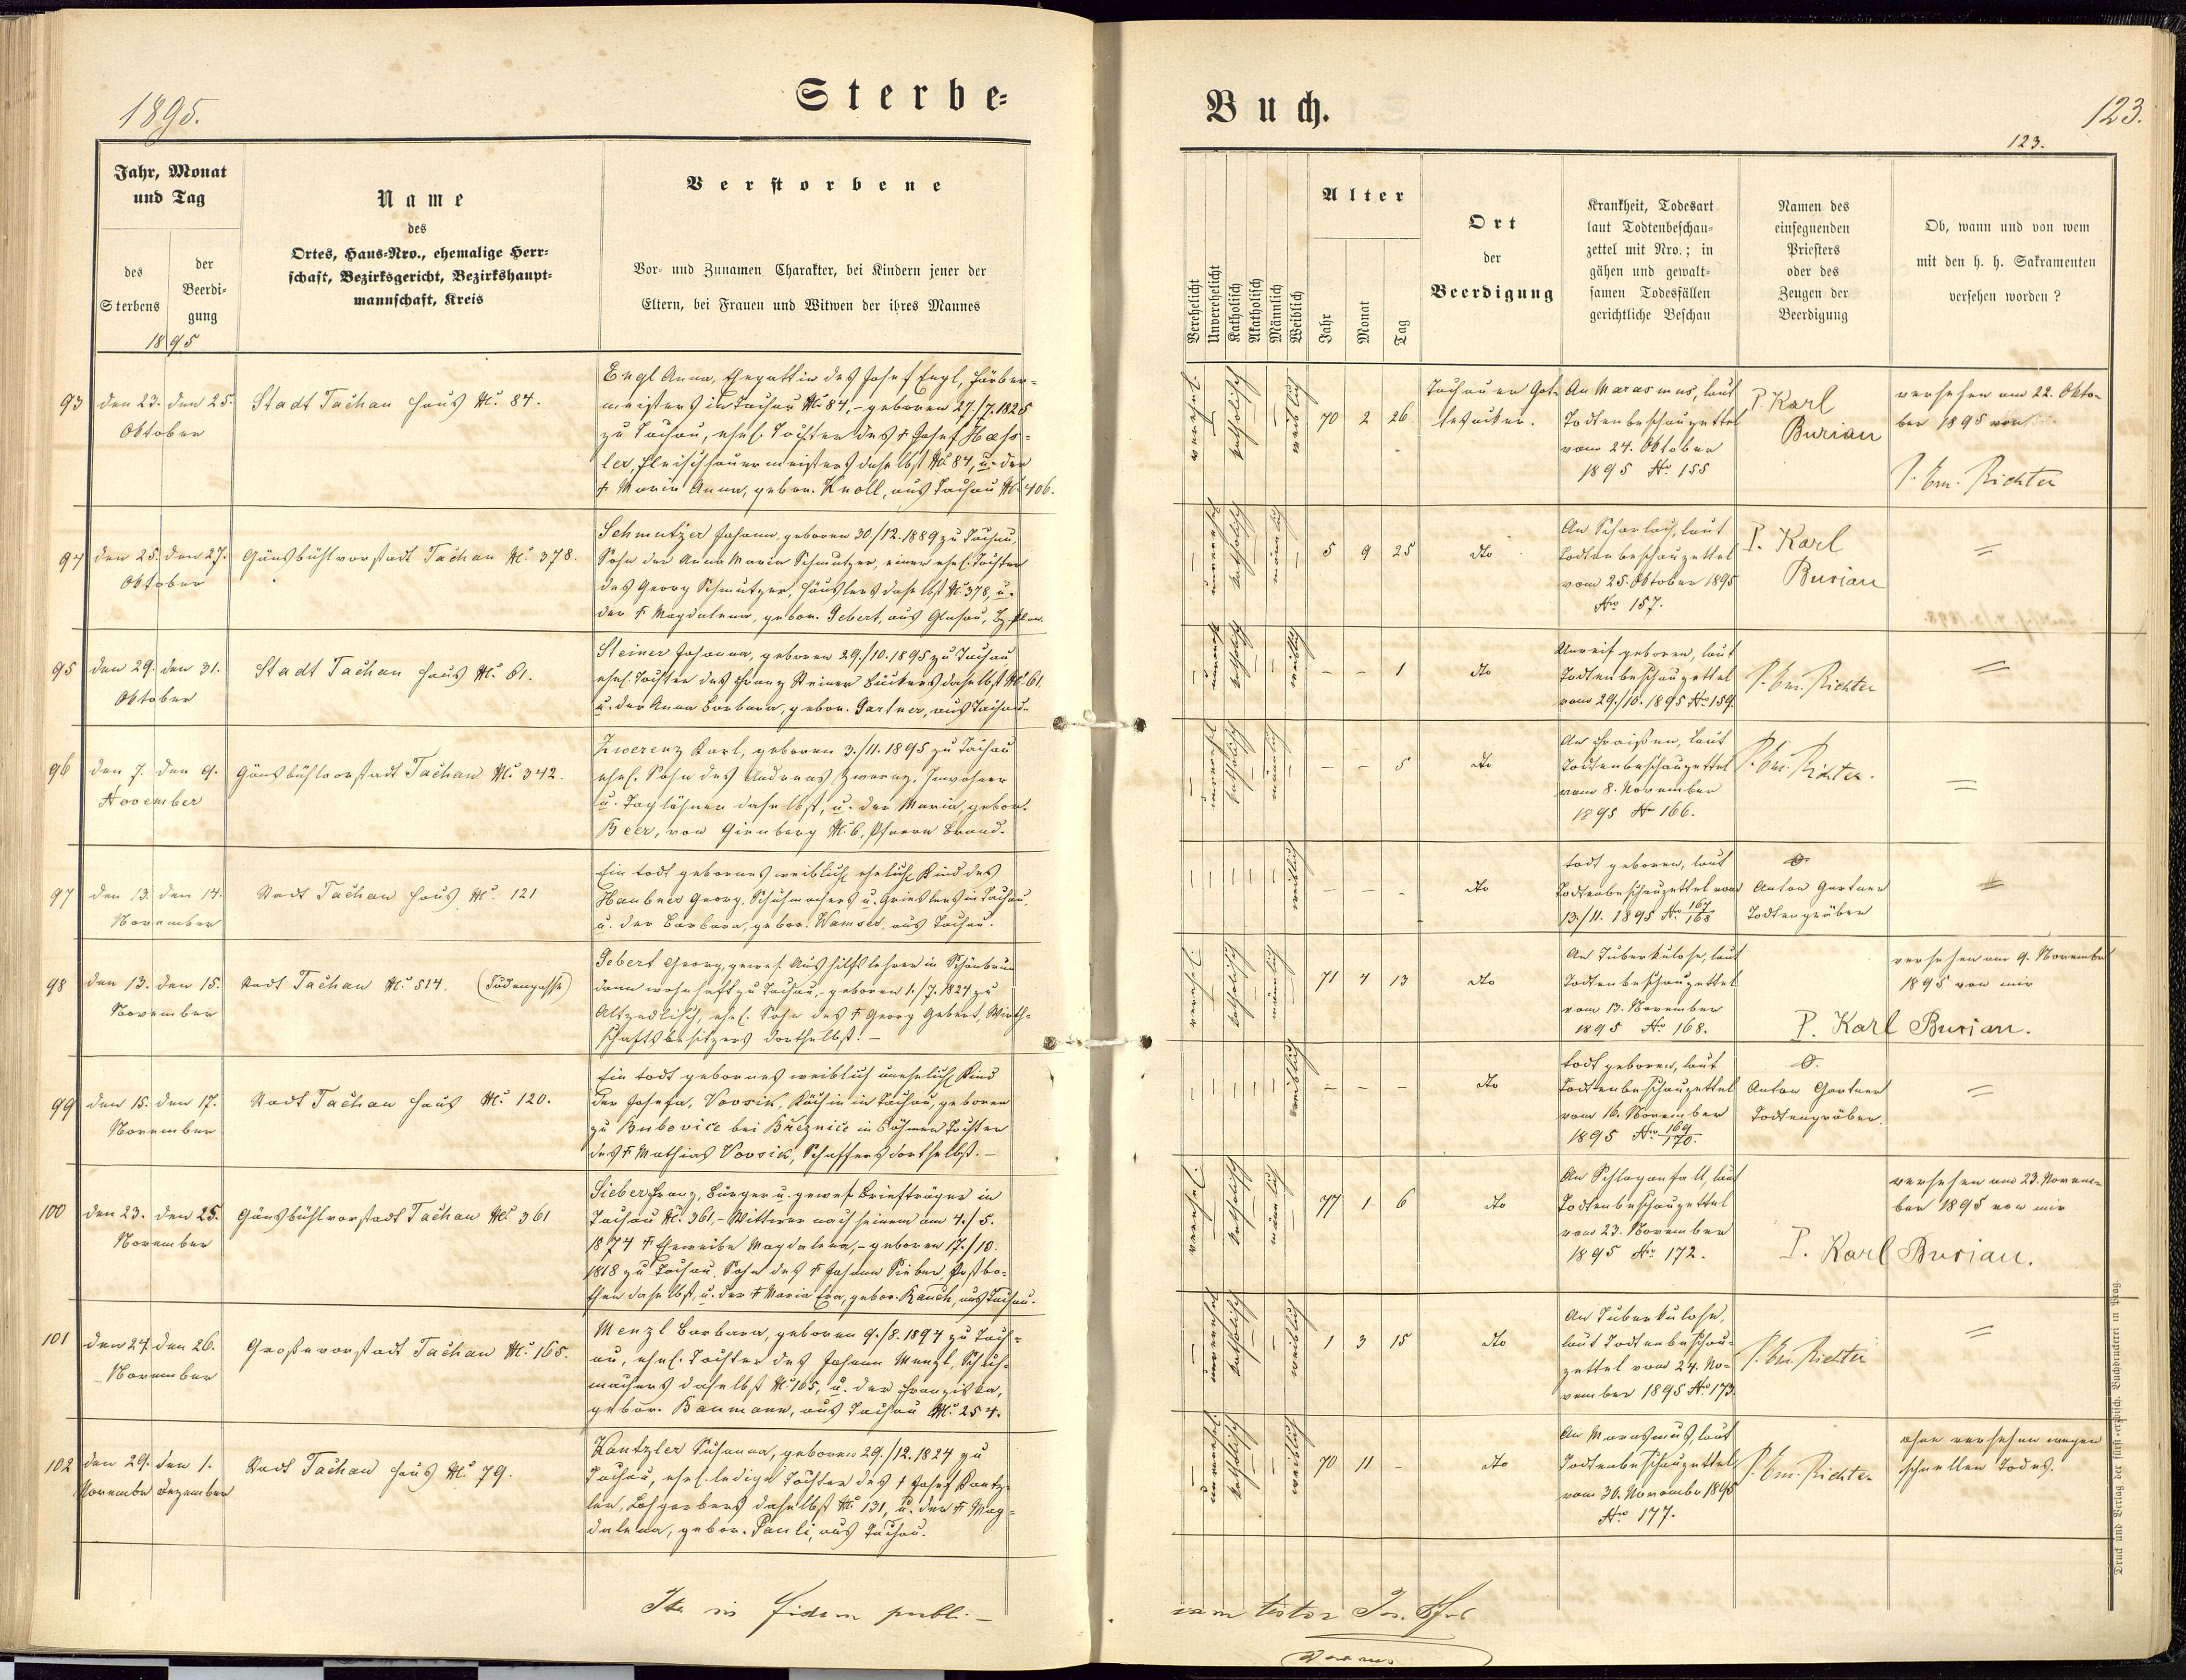 1895.
Sterbe=
Buch.
123.
123.
Jahr, Monat
und Tag
des
Sterbens
der
Beerdi-
gung
1895
Name
des
Ortes, Haus-Nro., ehemalige Herr-
schaft, Bezirksgericht, Bezirkshaupt-
mannschaft, Kreis
Verstorbene
Vor- und Zunamen Charakter, bei Kindern jener der
Eltern, bei Frauen und Witwen der ihres Mannes
Verehelicht
Unverehelicht
Katholisch
Akatholisch
Männlich
Weiblich
Alter
Jahr
Monat
Tag
Ort
der
Beerdigung
Krankheit, Todesart
laut Todtenbeschau-
zettel mit Nro.; in
gähen und gewalt-
samen Todesfällen
gerichtliche Beschau
Namen des
einsegnenden
Priesters
oder des
Zeugen der
Beerdigung
Ob, wann und von wem
mit den h. h. Sakramenten
versehen worden?
93
den 23. den 25.
Oktober
Stadt Tachau Haus Nr. 84.
Engl Anna, Ehegattin des Josef Engl, Färber-
meisters in Tachau Nr. 84, – geboren 27./7. 1825
zu Tachau, ehel. Tochter des † Josef Häss-
ler, Fleischhauermeisters daselbst Nr. 84, u. der
† Maria Anna, gebor. Knoll, aus Tachau Nr. 406.
verehel.
–
katholisch
–
–
weiblich
70 2 26
Tachauer Got-
tesacker.
An Marasmus, laut
Todtenbeschauzettel
vom 24. Oktober
1895 No. 155
P. Karl
Burian
versehen am 22. Okto-
ber 1895 von
P. Em. Richter
94
den 25. den 27.
Oktober
Gänsbühlvorstadt Tachau Nr. 378.
Schmutzer Johann, geboren 30/12. 1889 zu Tachau,
Sohn der Anna Maria Schmutzer, einer ehel. Tochter
des Georg Schmutzer, Häuslers daselbst Nr. 378, u.
der † Magdalena, gebor. Gebert, aus Glasau, Bz. Plan.
–
unverehel
katholisch
–
männlich
–
5 9 25
dto
An Scharlach, laut
Todtenbeschauzettel
vom 25. Oktober 1895
Nro 157.
P. Karl
Burian
=
95
den 29. den 31.
Oktober
Stadt Tachau Haus Nr. 61.
Steiner Johanna, geboren 29./10. 1895 zu Tachau,
ehel. Tochter des Franz Steiner Bäckers daselbst Nr. 61.
u. der Anna Barbara, gebor. Gartner, aus Tachau.
–
unverehel
katholisch
–
–
weiblich
– – 1
dto
Unreif geboren, laut
Todtenbeschauzettel
vom 29./10. 1895 No. 159.
P. Em. Richter
=
96
den 7. den 9.
November
Gänsbühlvorstadt Tachau Nr. 342.
Zwerenz Karl, geboren 3./11. 1895 zu Tachau
ehel. Sohn des Andreas Zwerenz, Inwohner
u. Taglöhner daselbst, u. der Maria, gebor.
Beer, von Girnberg Nr. 6, Pfarre Brand.
–
unverehel
katholisch
–
männlich
–
– – 5
dto
An Fraisen, laut
Todtenbeschauzettel
vom 8. November
1895 No 166.
P. Em. Richter.
=
97
den 13. den 14.
November
Stadt Tachau Haus Nr. 121
Ein todt gebornes weiblich ehelich Kind des
Haubner Georg, Schuhmachers u. Grieslers in Tachau,
u. der Barbara, gebor. Wamser, aus Tachau.
– – – – –
weiblich
– – –
dto
todt geboren, laut
Todtenbeschauzettel vom
13./11. 1895 No. 167/168
Anton Gartner
Todtengräber
=
98
den 13. den 15.
November
Stadt Tachau Nr. 514. (Judengasse)
Gebert Georg, gewes. Aushilfslehrer in Schönbrunn
dann wohnhaft zu Tachau, – geboren 1./7. 1824 zu
Altzedlisch, ehel. Sohn des † Georg Gebert, Wirth-
schaftsbesitzers dortselbst. –
verehel.
–
katholisch
–
männlich
–
71 4 13
dto
An Tuberkulose, laut
Todtenbeschauzettel
vom 13. November
1895 No. 168.
P. Karl Burian.
versehen am 9. November
1895 von mir
99
den 15. den 17.
November
Stadt Tachau Haus Nr. 120.
Ein todt gebornes weiblich unehelich Kind
der Josefa, Vovsik, Köchin in Tachau, geboren
zu Bubovice bei Březnice in Böhmen Tochter
des † Mathias Vovsik, Schaffers dortselbst. –
– – – – –
weiblich
– – –
dto
todt geboren, laut
Todtenbeschauzettel
vom 16. November
1895 No. 169/170.
Anton Gartner
Todtengräber.
=
100
den 23. den 25.
November
Gänsbühlvorstadt Tachau Nr. 361
Sieber Franz, Bürger u. gewes. Briefträger in
Tachau Nr. 361, – Witwer nach seinem am 4./5.
1874 † Eheweibe Magdalena, – geboren 17./10.
1818 zu Tachau, Sohn des † Johann Sieber Postbo-
then daselbst, u. der † Maria Eva, gebor. Rauch, aus Tachau.
verehel.
–
katholisch
–
männlich
–
77 1 6
dto
An Schlaganfall, laut
Todtenbeschauzettel
vom 23. November
1895 No. 172.
P. Karl Burian.
versehen am 23. Novem-
ber 1895 von mir
101
den 24. den 26.
November
Großevorstadt Tachau Nr. 165.
Menzl Barbara, geboren 9./8. 1894 zu Tach-
au, ehel. Tochter des Johann Menzl, Schuh-
machers daselbst Nr. 165, u. der Franziska,
gebor. Baumann, aus Tachau Nr. 254.
–
unverehel
katholisch
–
–
weiblich
1 3 15
dto
An Tuberkulose,
laut Todtenbeschau-
zettel vom 24. No-
vember 1895 No. 173.
P. Em. Richter
=
102
den 29. den 1.
November Dezember
Stadt Tachau Haus Nr. 79.
Kantzler Susanna, geboren 29./12. 1824 zu
Tachau, ehel. ledige Tochter des † Josef Kantz-
ler, Lohgerbers daselbst Nr. 131, u. der † Mag-
dalena, gebor. Pauli, aus Tachau.
–
unverehel.
katholisch
–
–
weiblich
70 11 –
dto
An Marasmus, laut
Todtenbeschauzettel
vom 30. November 1895
Nro 177.
P. Em. Richter
ohne versehen wegen
schnellen Todes.
Ita in fidem publi-
cam testor Jos.
Druck und Verlag der fürst-erzbisch. Buchdruckerei in Prag